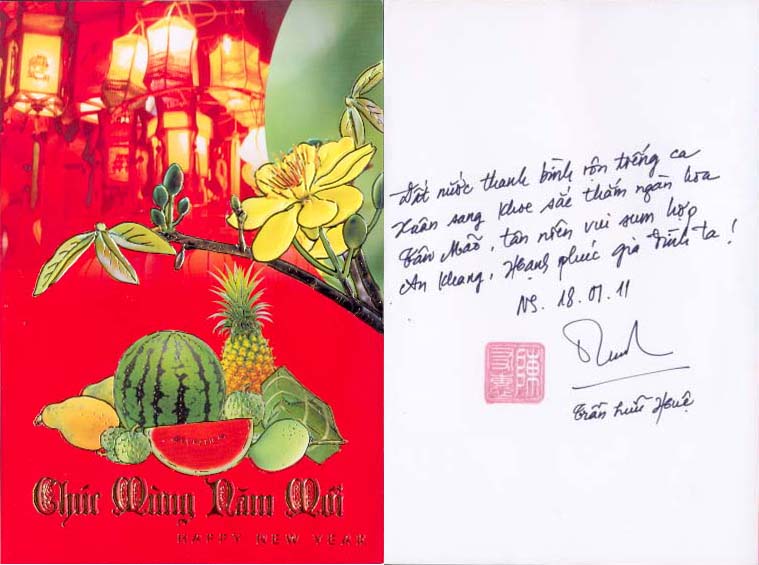 Chúc Mừng Năm Mới
HAPPY NEW YEAR
Đất nước thanh bình rộn tiếng ca
Xuân sang khoe sắc thắm ngàn hoa
Tân Mão, tân niên vui sum họp
An Khang, Hạnh phúc gia đình ta!
NS. 18.01.11
陳
Trần Hữu Huệ